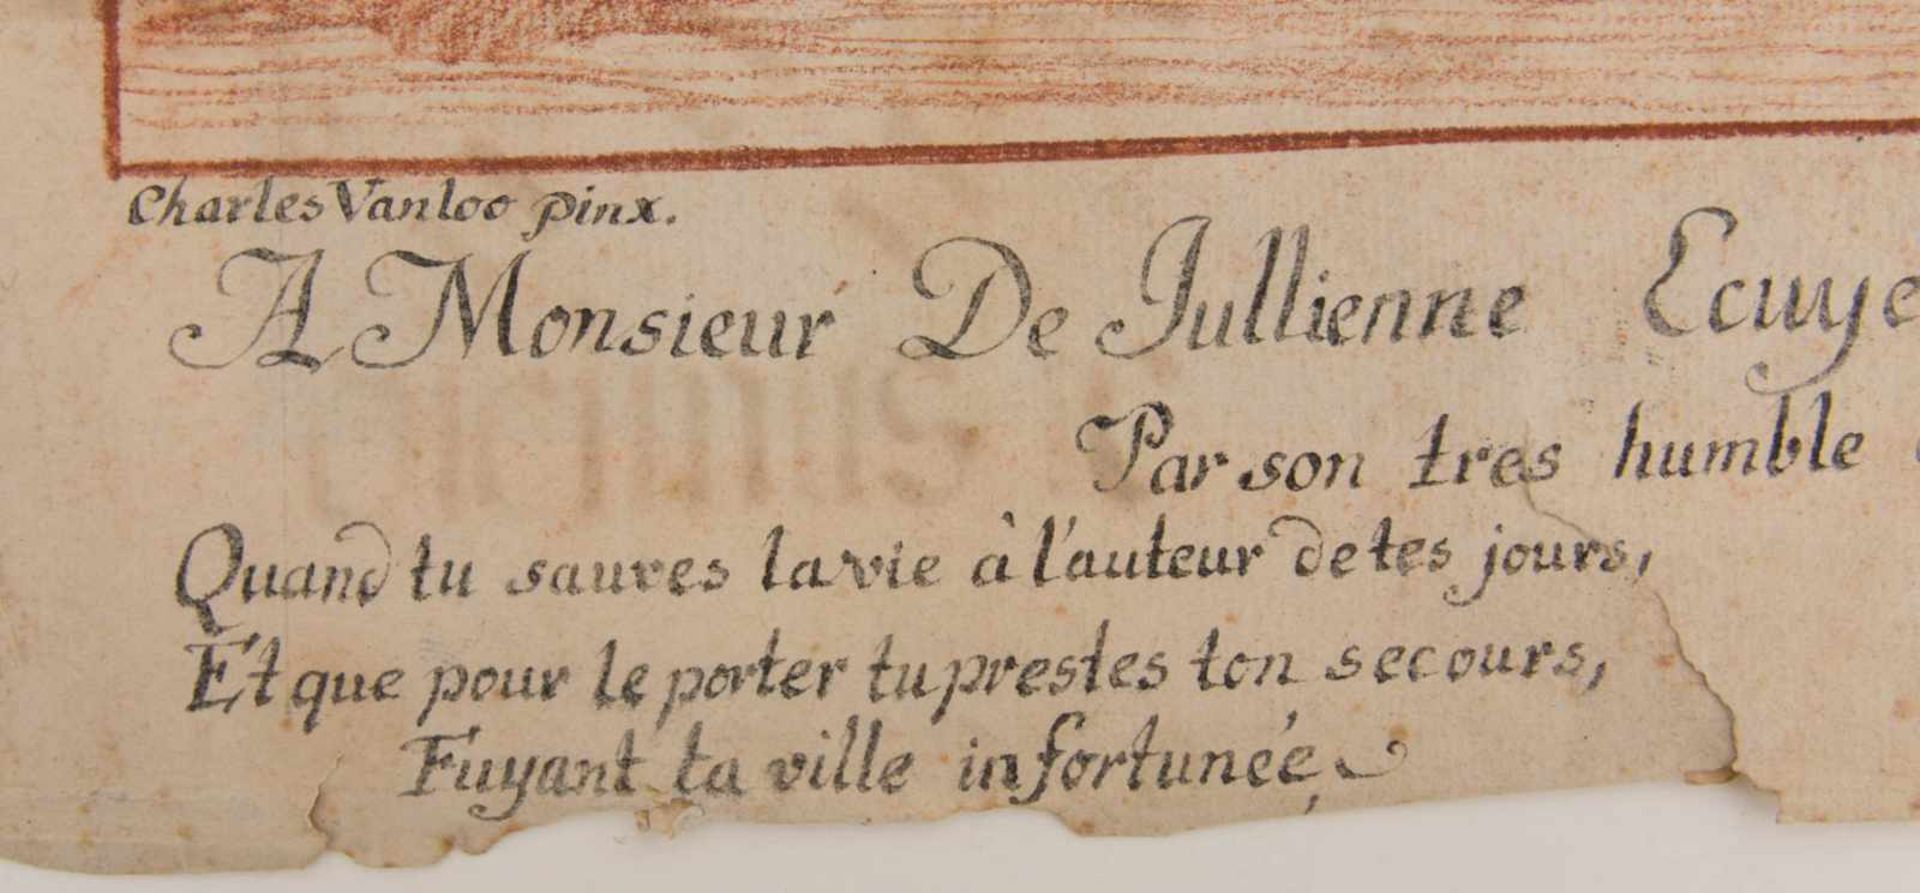 Charles Vanloo pinx.
A Monsieur De Jullienne Ecuye
Par son tres humble
Quand tu sauves la vie à l'auteur de tes jours,
Et que pour le porter tu prestes ton secours,
Fuyant ta ville infortunée,